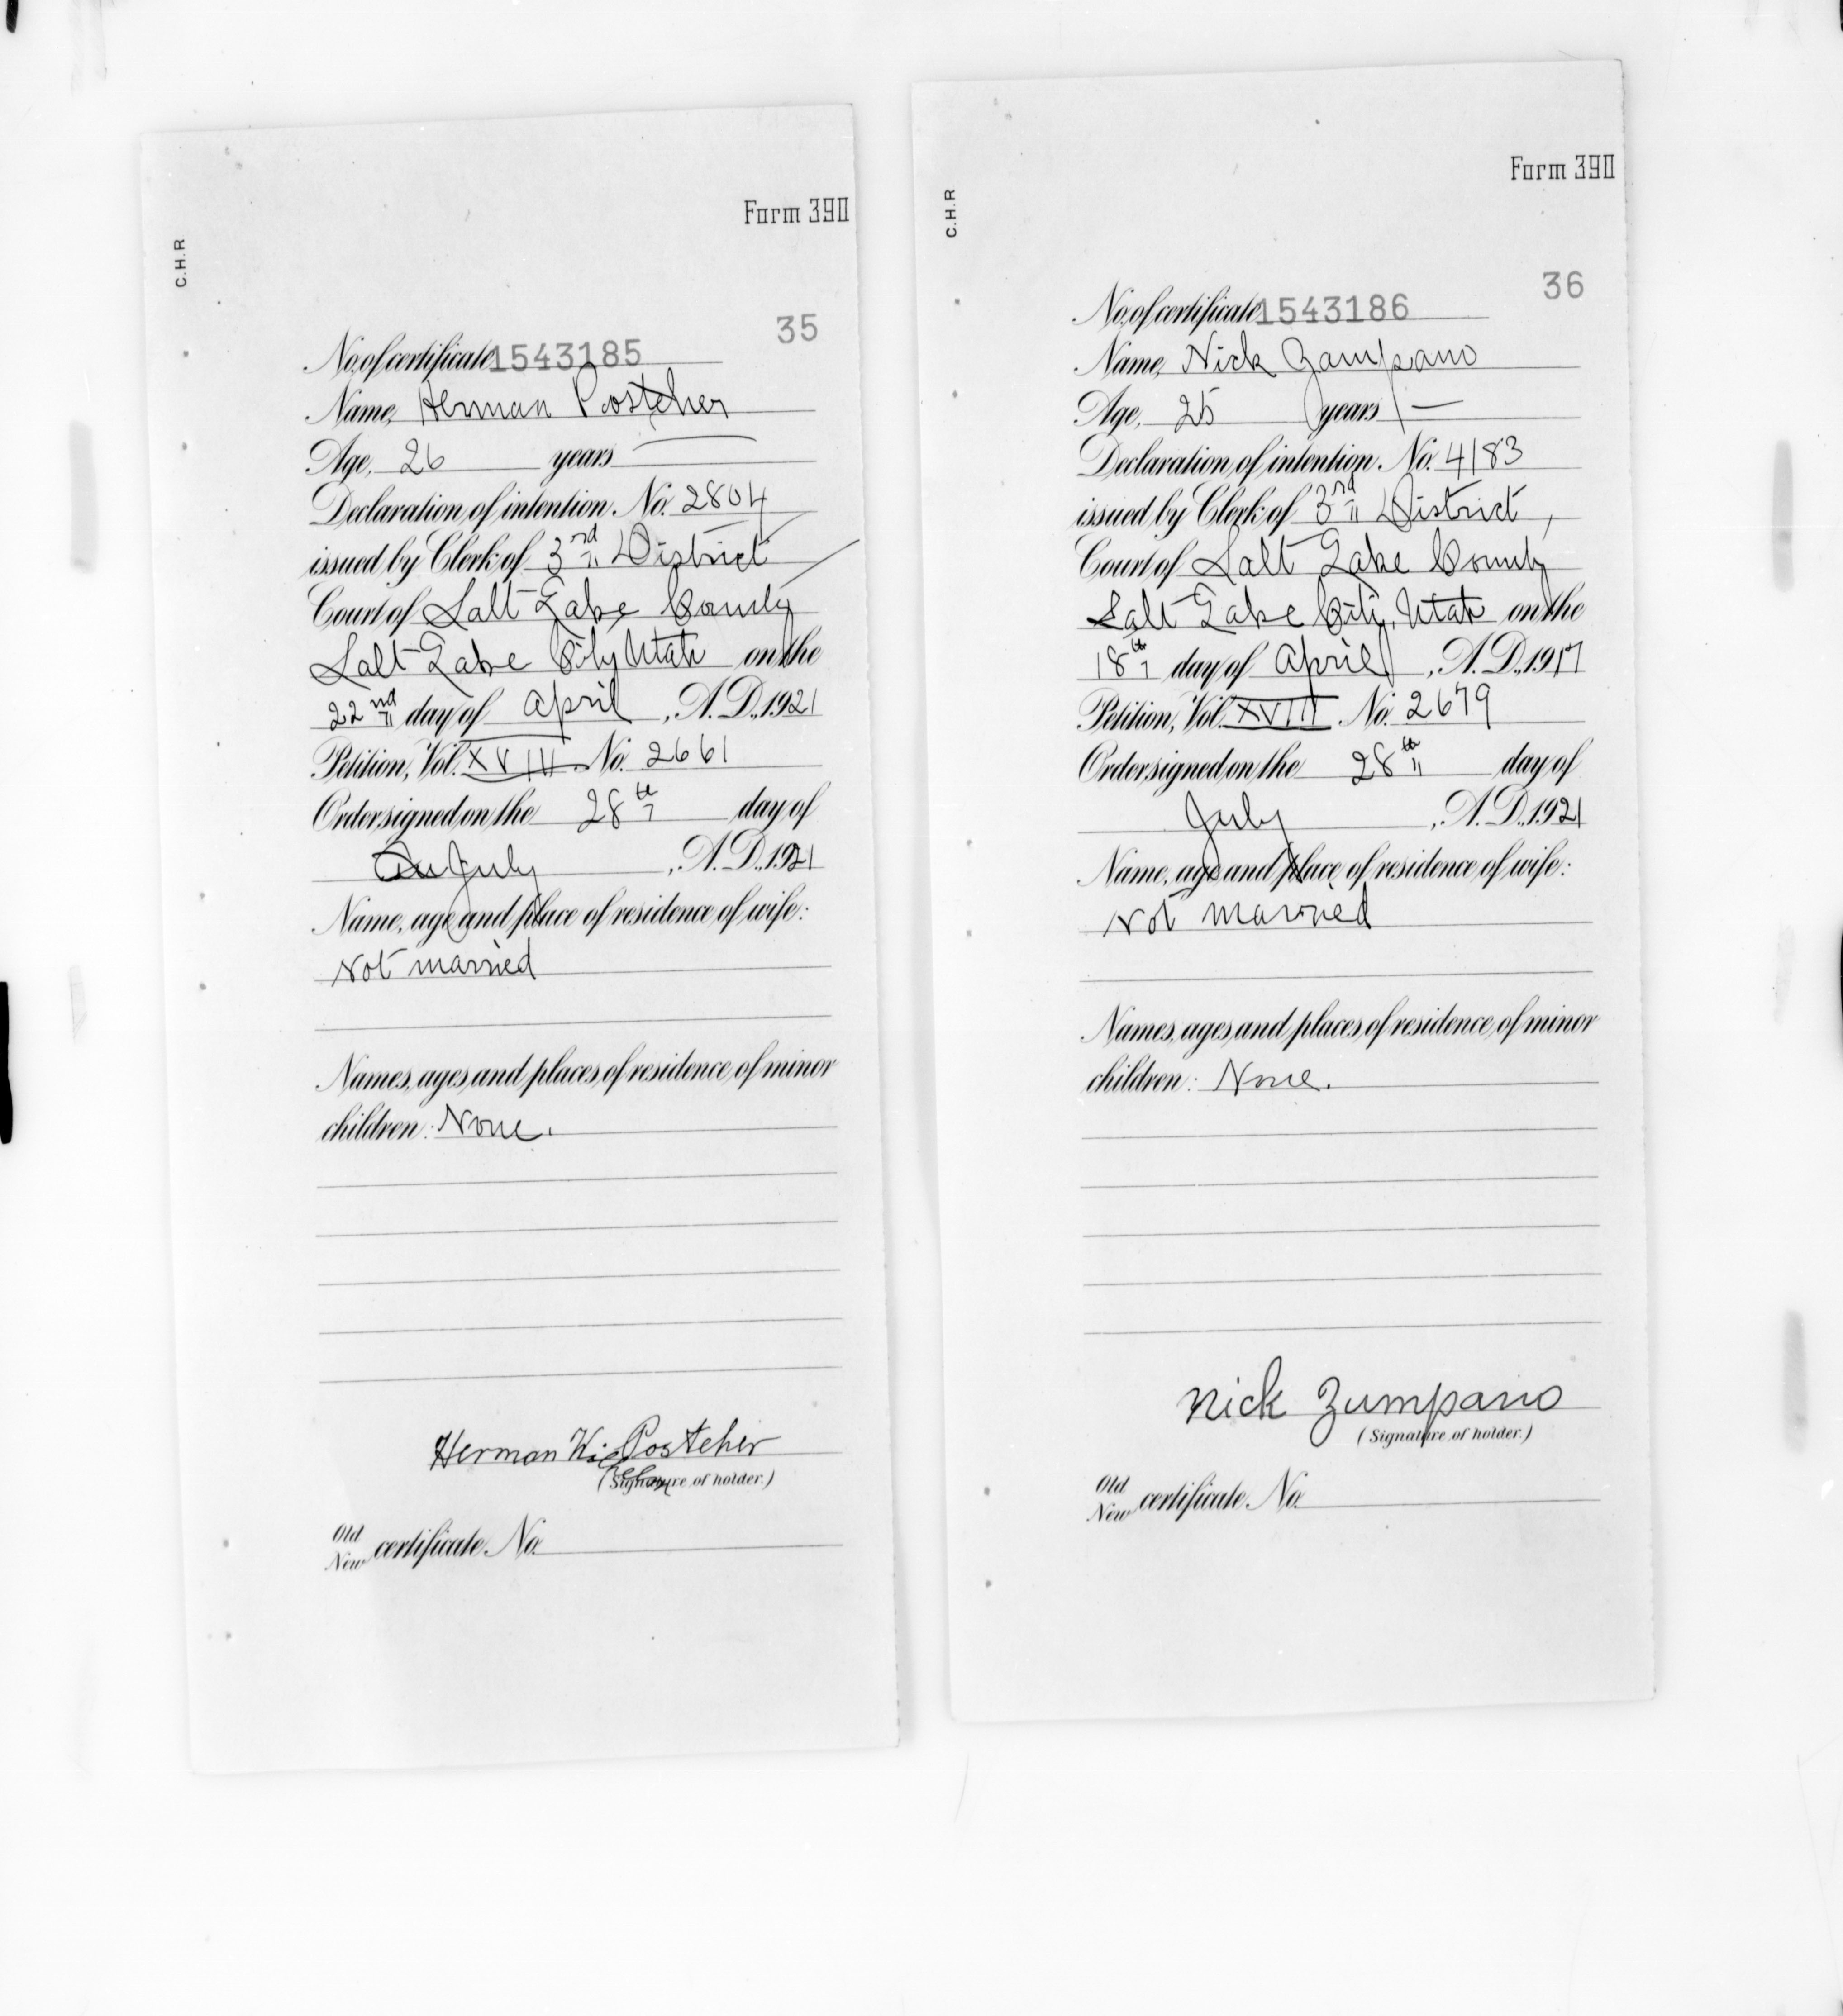 Form 390
C.H.R
35
No. of certificate 1543185
Name, Herman Postcher
Age, 26 years —
Declaration of intention No. 2804
issued by Clerk of 3rd District
Court of Salt Lake County
Salt Lake City Utah on the
22nd day of April, A.D., 1921
Petition, Vol. XVIII No. 2661
Order signed on the 28th day of
July, A.D., 1921
Name, age and place of residence of wife:
Not married
Names, ages and places of residence of minor
children: None.
Herman Postcher
(Signature of holder.)
Old
New certificate No.
Form 390
C.H.R
36
No. of certificate 1543186
Name, Nick Zumpano
Age, 25 years —
Declaration of intention No. 4183
issued by Clerk of 3rd District,
Court of Salt Lake County
Salt Lake City, Utah on the
18th day of April, A.D., 1917
Petition, Vol. XVIII No. 2679
Order signed on the 28th day of
July, A.D., 1921
Name, age and place of residence of wife:
Not married
Names, ages and places of residence of minor
children: None.
Nick Zumpano
(Signature of holder.)
Old
New certificate No.